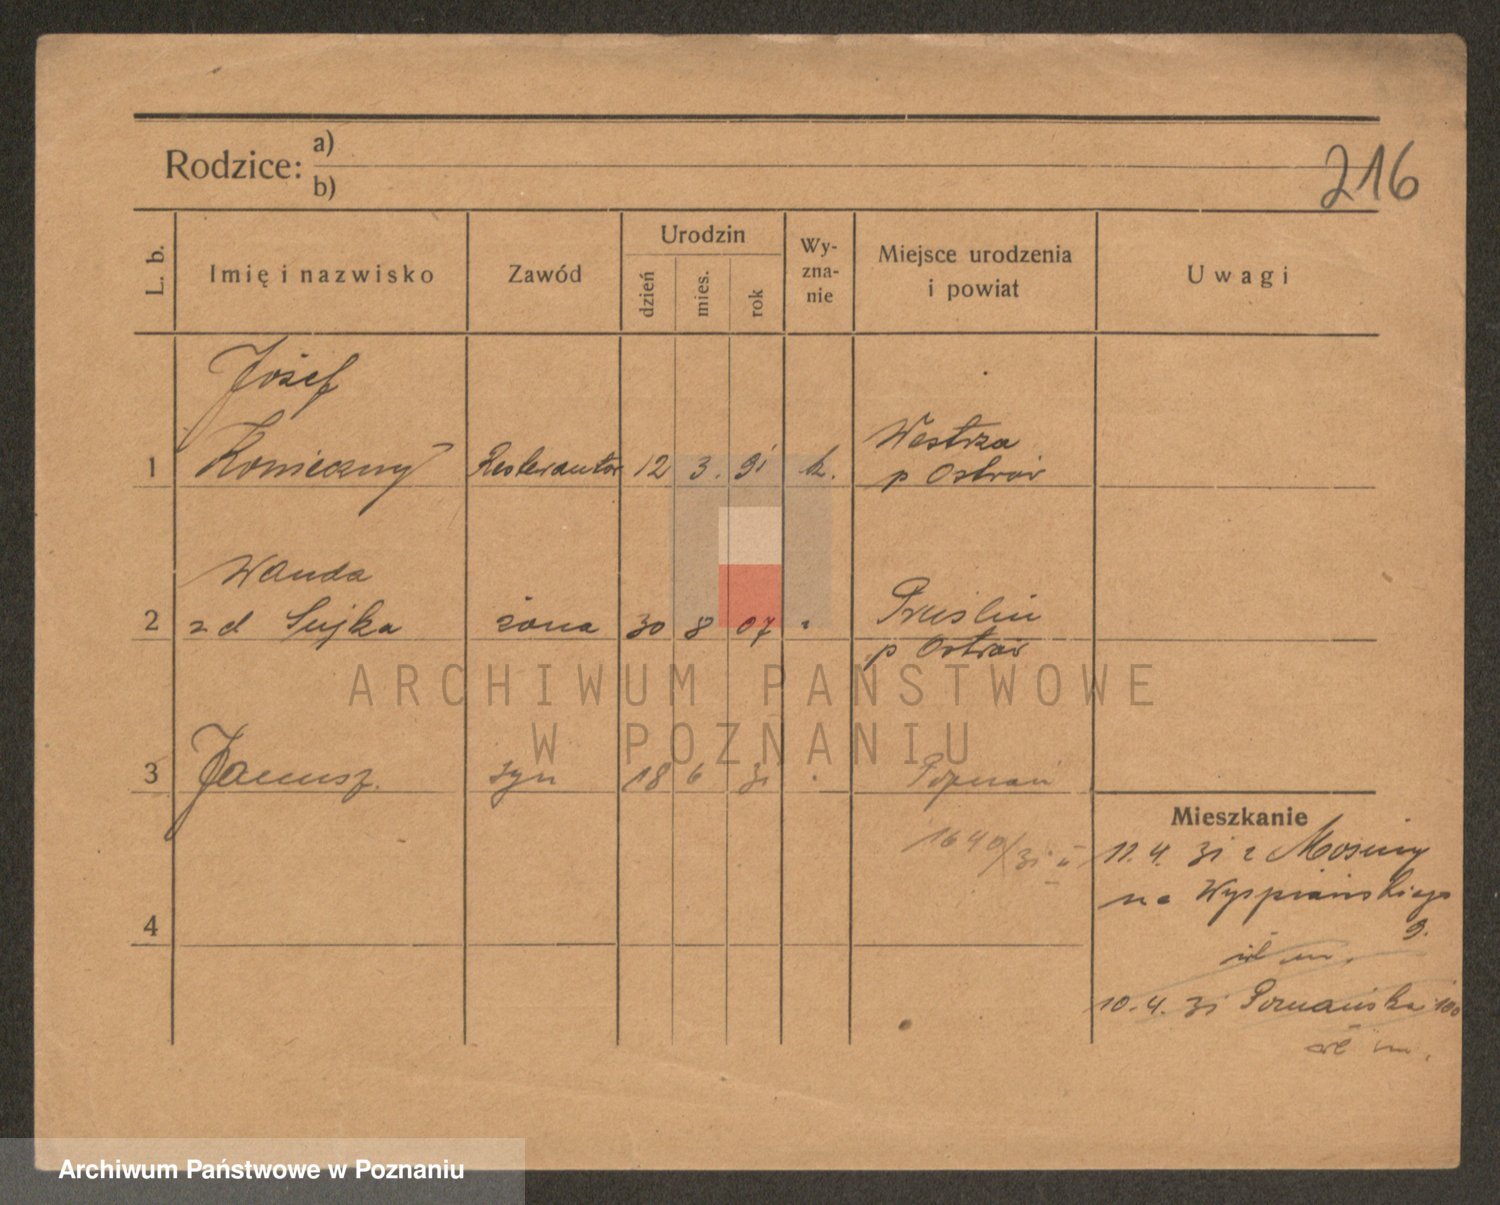 Rodzice: a)
b)
216
L. b.
Imię i nazwisko
Zawód
Urodzin
dzień
mies.
rok
Wy-
zna-
nie
Miejsce urodzenia
i powiat
Uwagi
Józef
1 Konieczny Restaurator 12 3. 91 k. Westrza
p Ostrów
Wanda
2 z d Sujka żona 30 8 07 " Pruślin
p Ostrów
3 Janusz syn 18 6 31 Poznań
1640/31 II
4
Mieszkanie
11. 4. 31 z Mosiny
na Wyspiańskiego
9.
wł m.
10. 4. 31 Poznańska 100
wł m.
ARCHIWUM PAŃSTWOWE
W POZNANIU
Archiwum Państwowe w Poznaniu